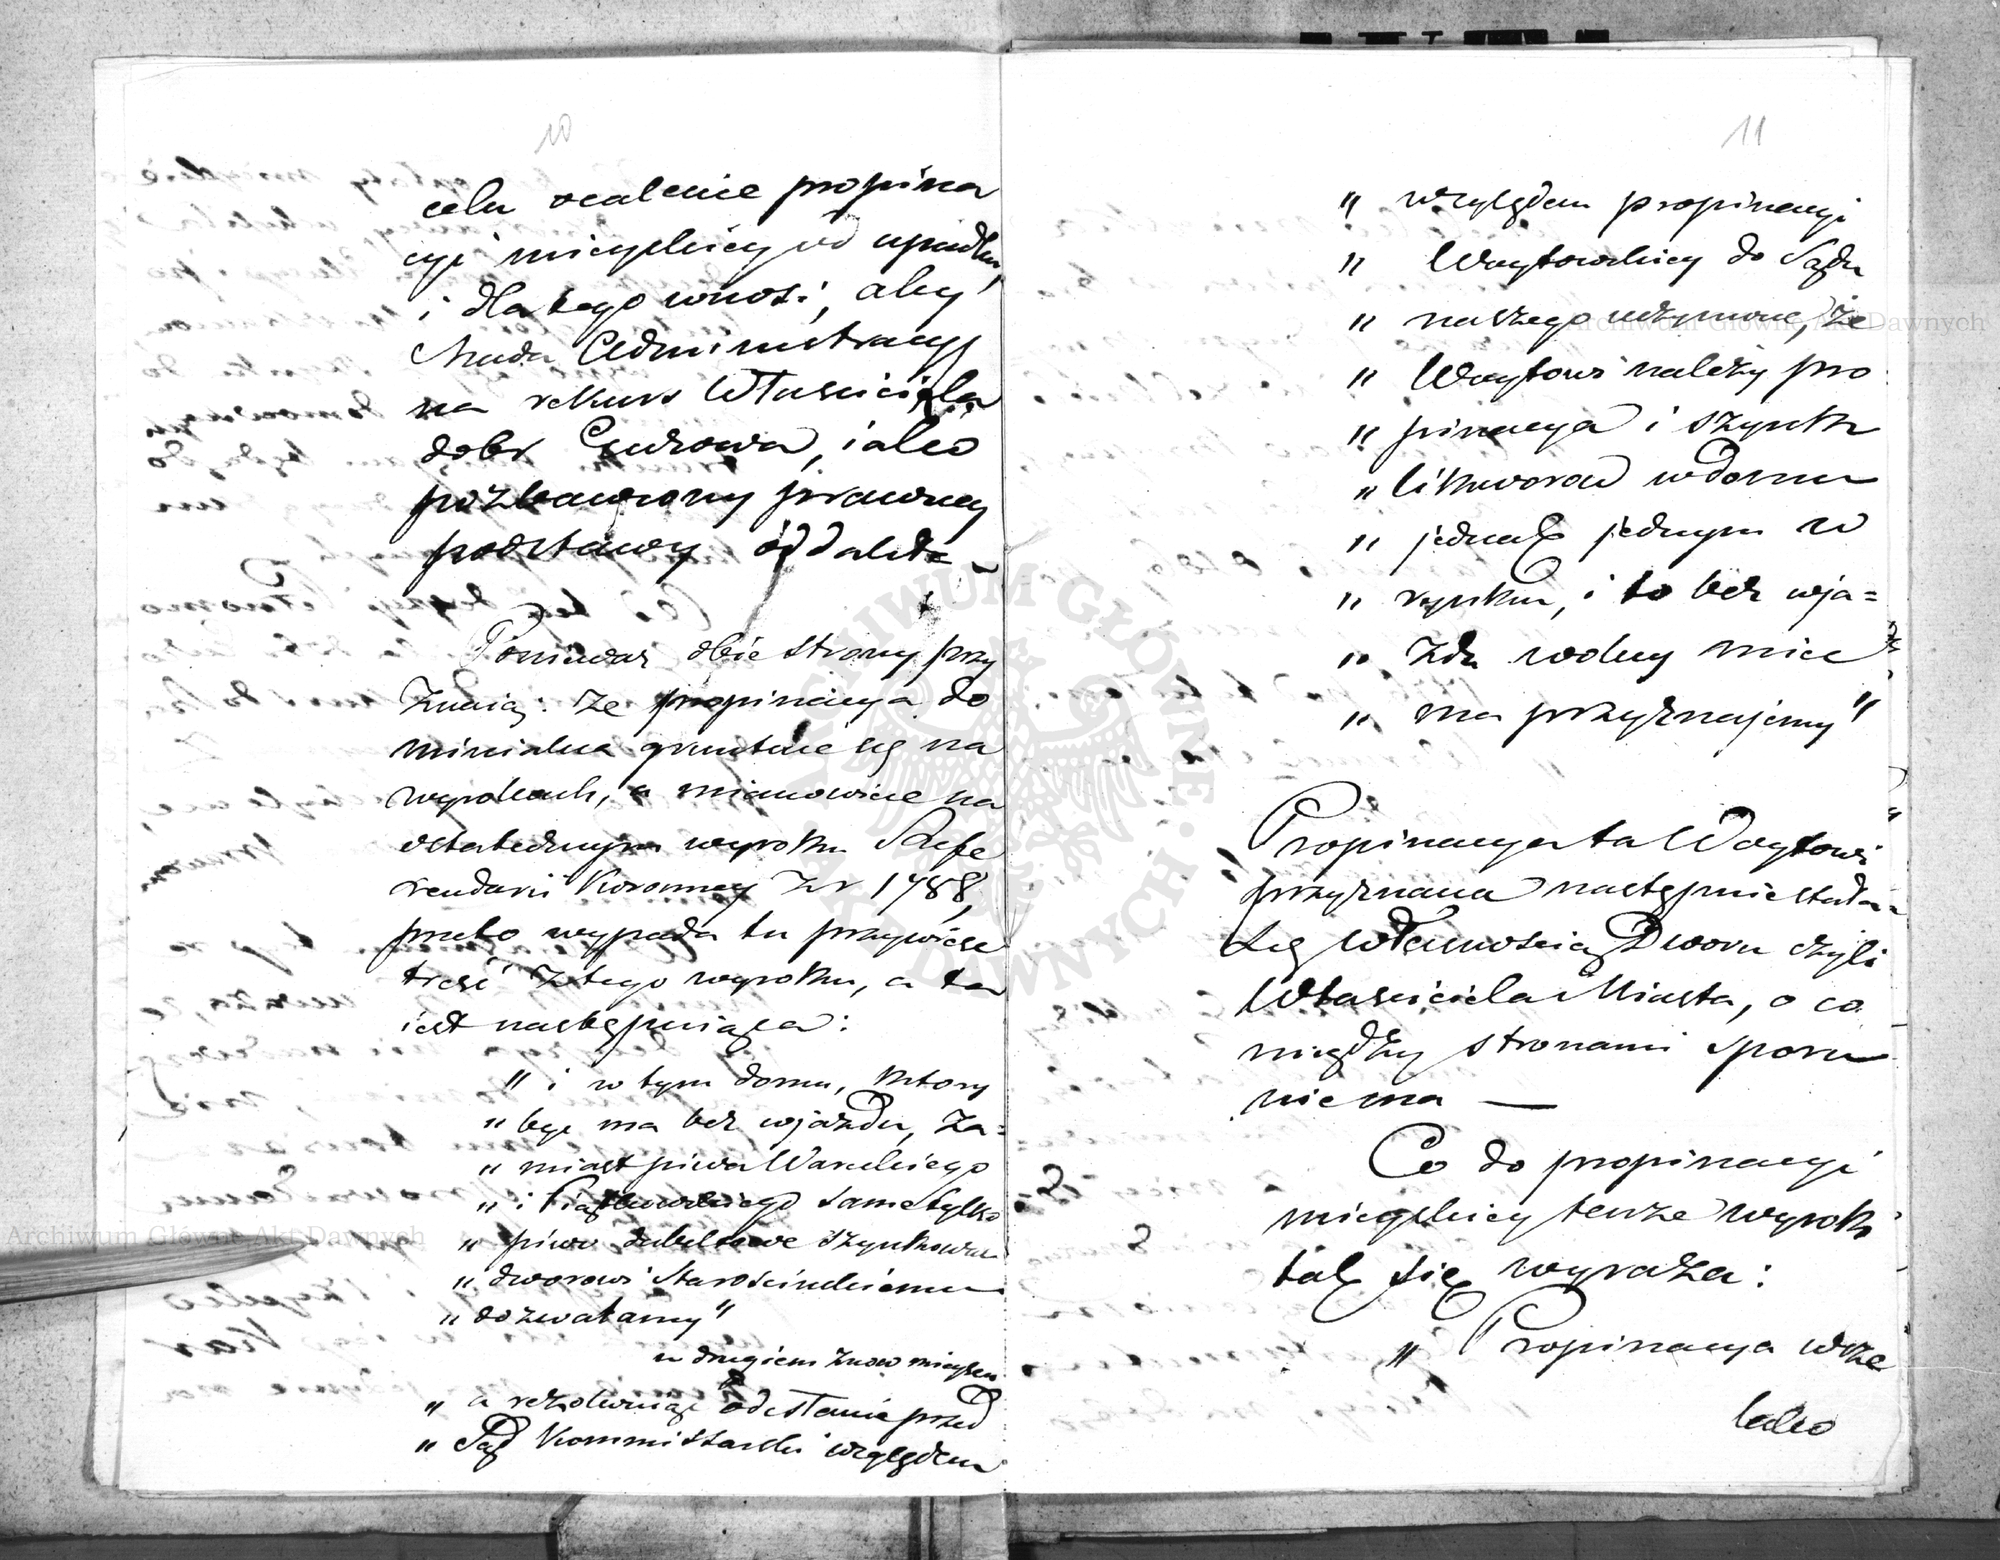 10
celu ocalenie propina
cyi mieyskiey od upadku,
i dla tego wnosi, aby
Rada Administracyj
na rekurs Właściciela
dobr Czerowa, iako
pozbawiony prawney
podstawy oddaliła
Ponieważ obie strony przy
znaią: że propinacya do
minialna gruntuie się na
wyrokach, a mianowicie na
ostatecznym wyroku Refe
rendarii Koronney z r 1788,
przeto wypada tu przywieść
treść z tego wyroku, a ta
iest następuiąca:
" i w tym domu, ktory
" być ma bez wjazdu, za=
" miast piwa Wareckiego
" i Piątkowskiego same tylko
" piwo dubeltowe szynkować
" dworowi Starościńskiemu
" dozwalamy"
w drugiem znow mieyscu
" a rezolwuiąc odesłanie przed
" Sąd Kommissarski względem
11
" względem propinacyi
" Woytowskiey do Sądu
" naszego uczynione, że
" Woytowi należy pro
" pinacya i szynk
" likworow w domu
" jednak jednym w
" rynku, i to bez wja=
" zdu wolny mieć
" ma przyznajemy"
Propinacya ta Woytowi
przyznana następnie stała
się własnością Dworu czyli
Właściciela Miasta, o co
między stronami sporu
nie ma —
Co do propinacyi
mieyskiey tenże wyrok
tak się wyraża:
" Propinacya wsze
lako
Archiwum Główne Akt Dawnych
Archiwum Główne Akt Dawnych
ARCHIWUM GŁÓWNE
· AKT DAWNYCH ·